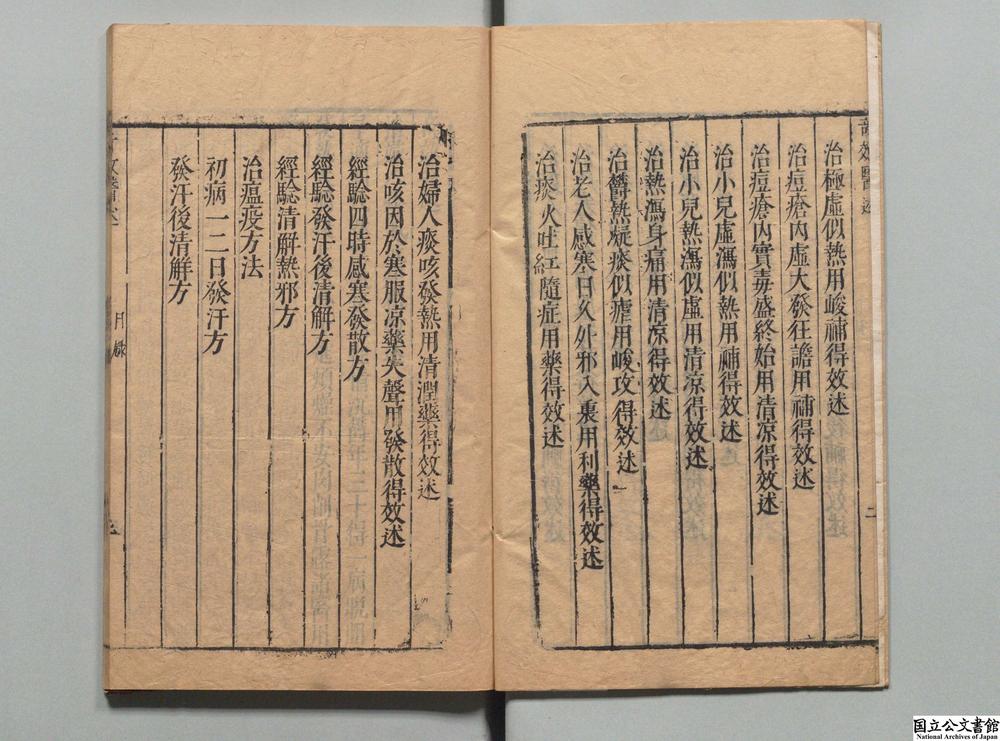 治極虛似熱用峻補得效述
治痘瘡內虛大發狂譫用補得效述
治痘瘡內實毒盛終始用清凉得效述
治小兒虛瀉似熱用補得效述
治小兒熱瀉似虛用清凉得效述
治熱瀉身痛用清凉得效述
治鬱熱凝痰似瘧用峻攻得效述
治老人感寒日久外邪入裏用利藥得效述
治痰火吐紅隨症用藥得效述
二
治婦人痰咳發熱用清潤藥得效述
治咳因於寒服凉藥失聲用發散得效述
經驗四時感寒發散方
經驗發汗後清解方
經驗清解熱邪方
治瘟疫方法
初病一二日發汗方
發汗後清解方
目錄
国立公文書館
National Archives of Japan